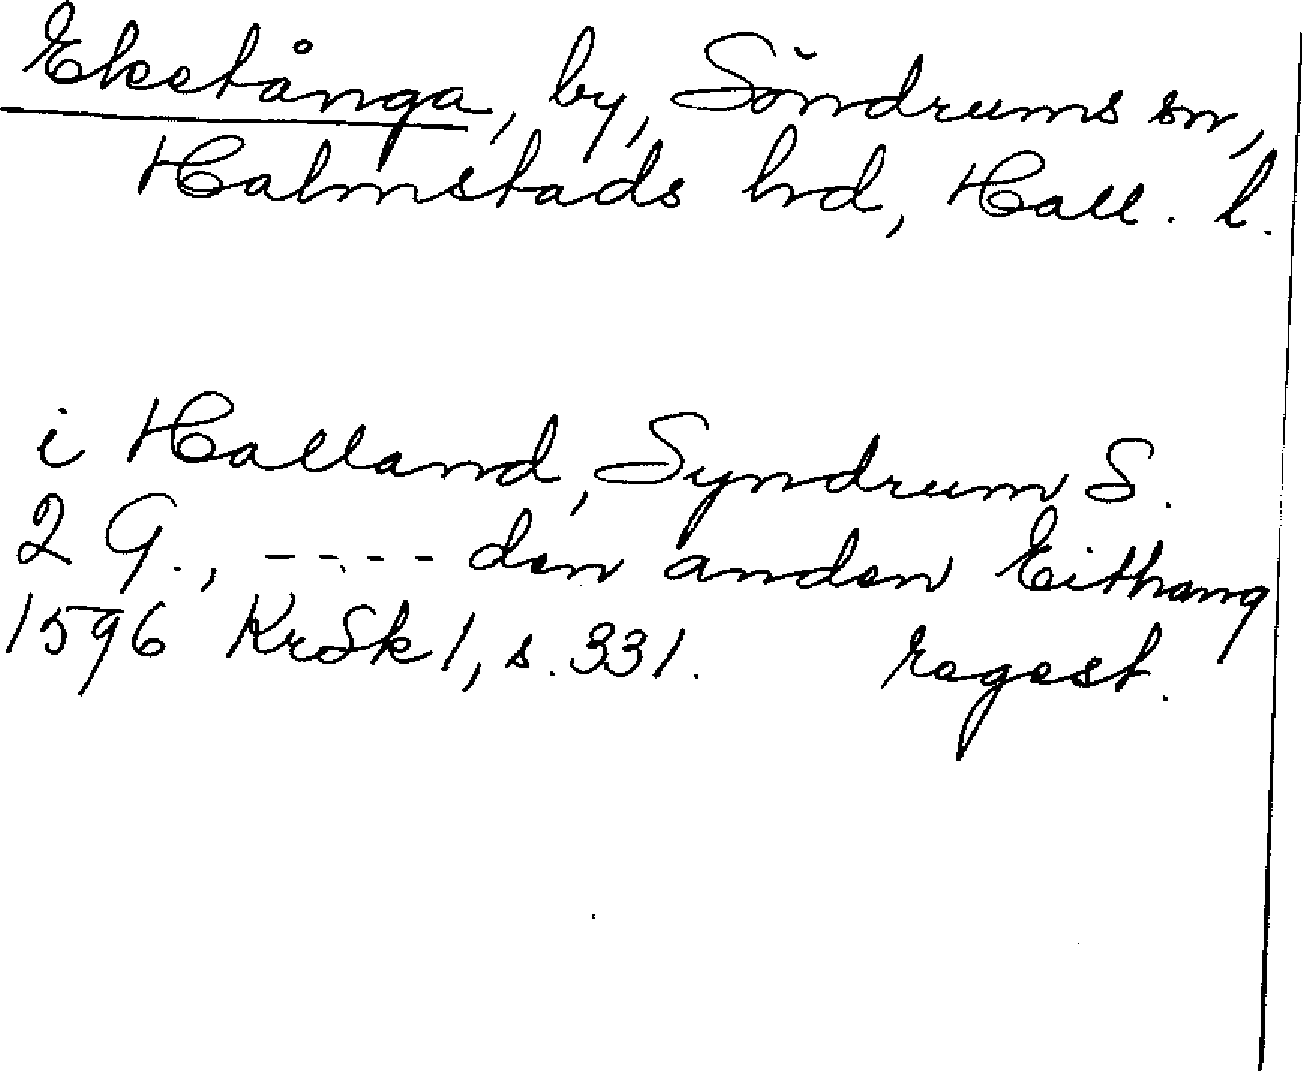 Eketånga, by, Söndrums sn,
Halmstads hd, Hall. l.
i Halland, Syndrum S.
2 G., ---- den anden Eithang
1596 KrSk 1, s. 331. regest.